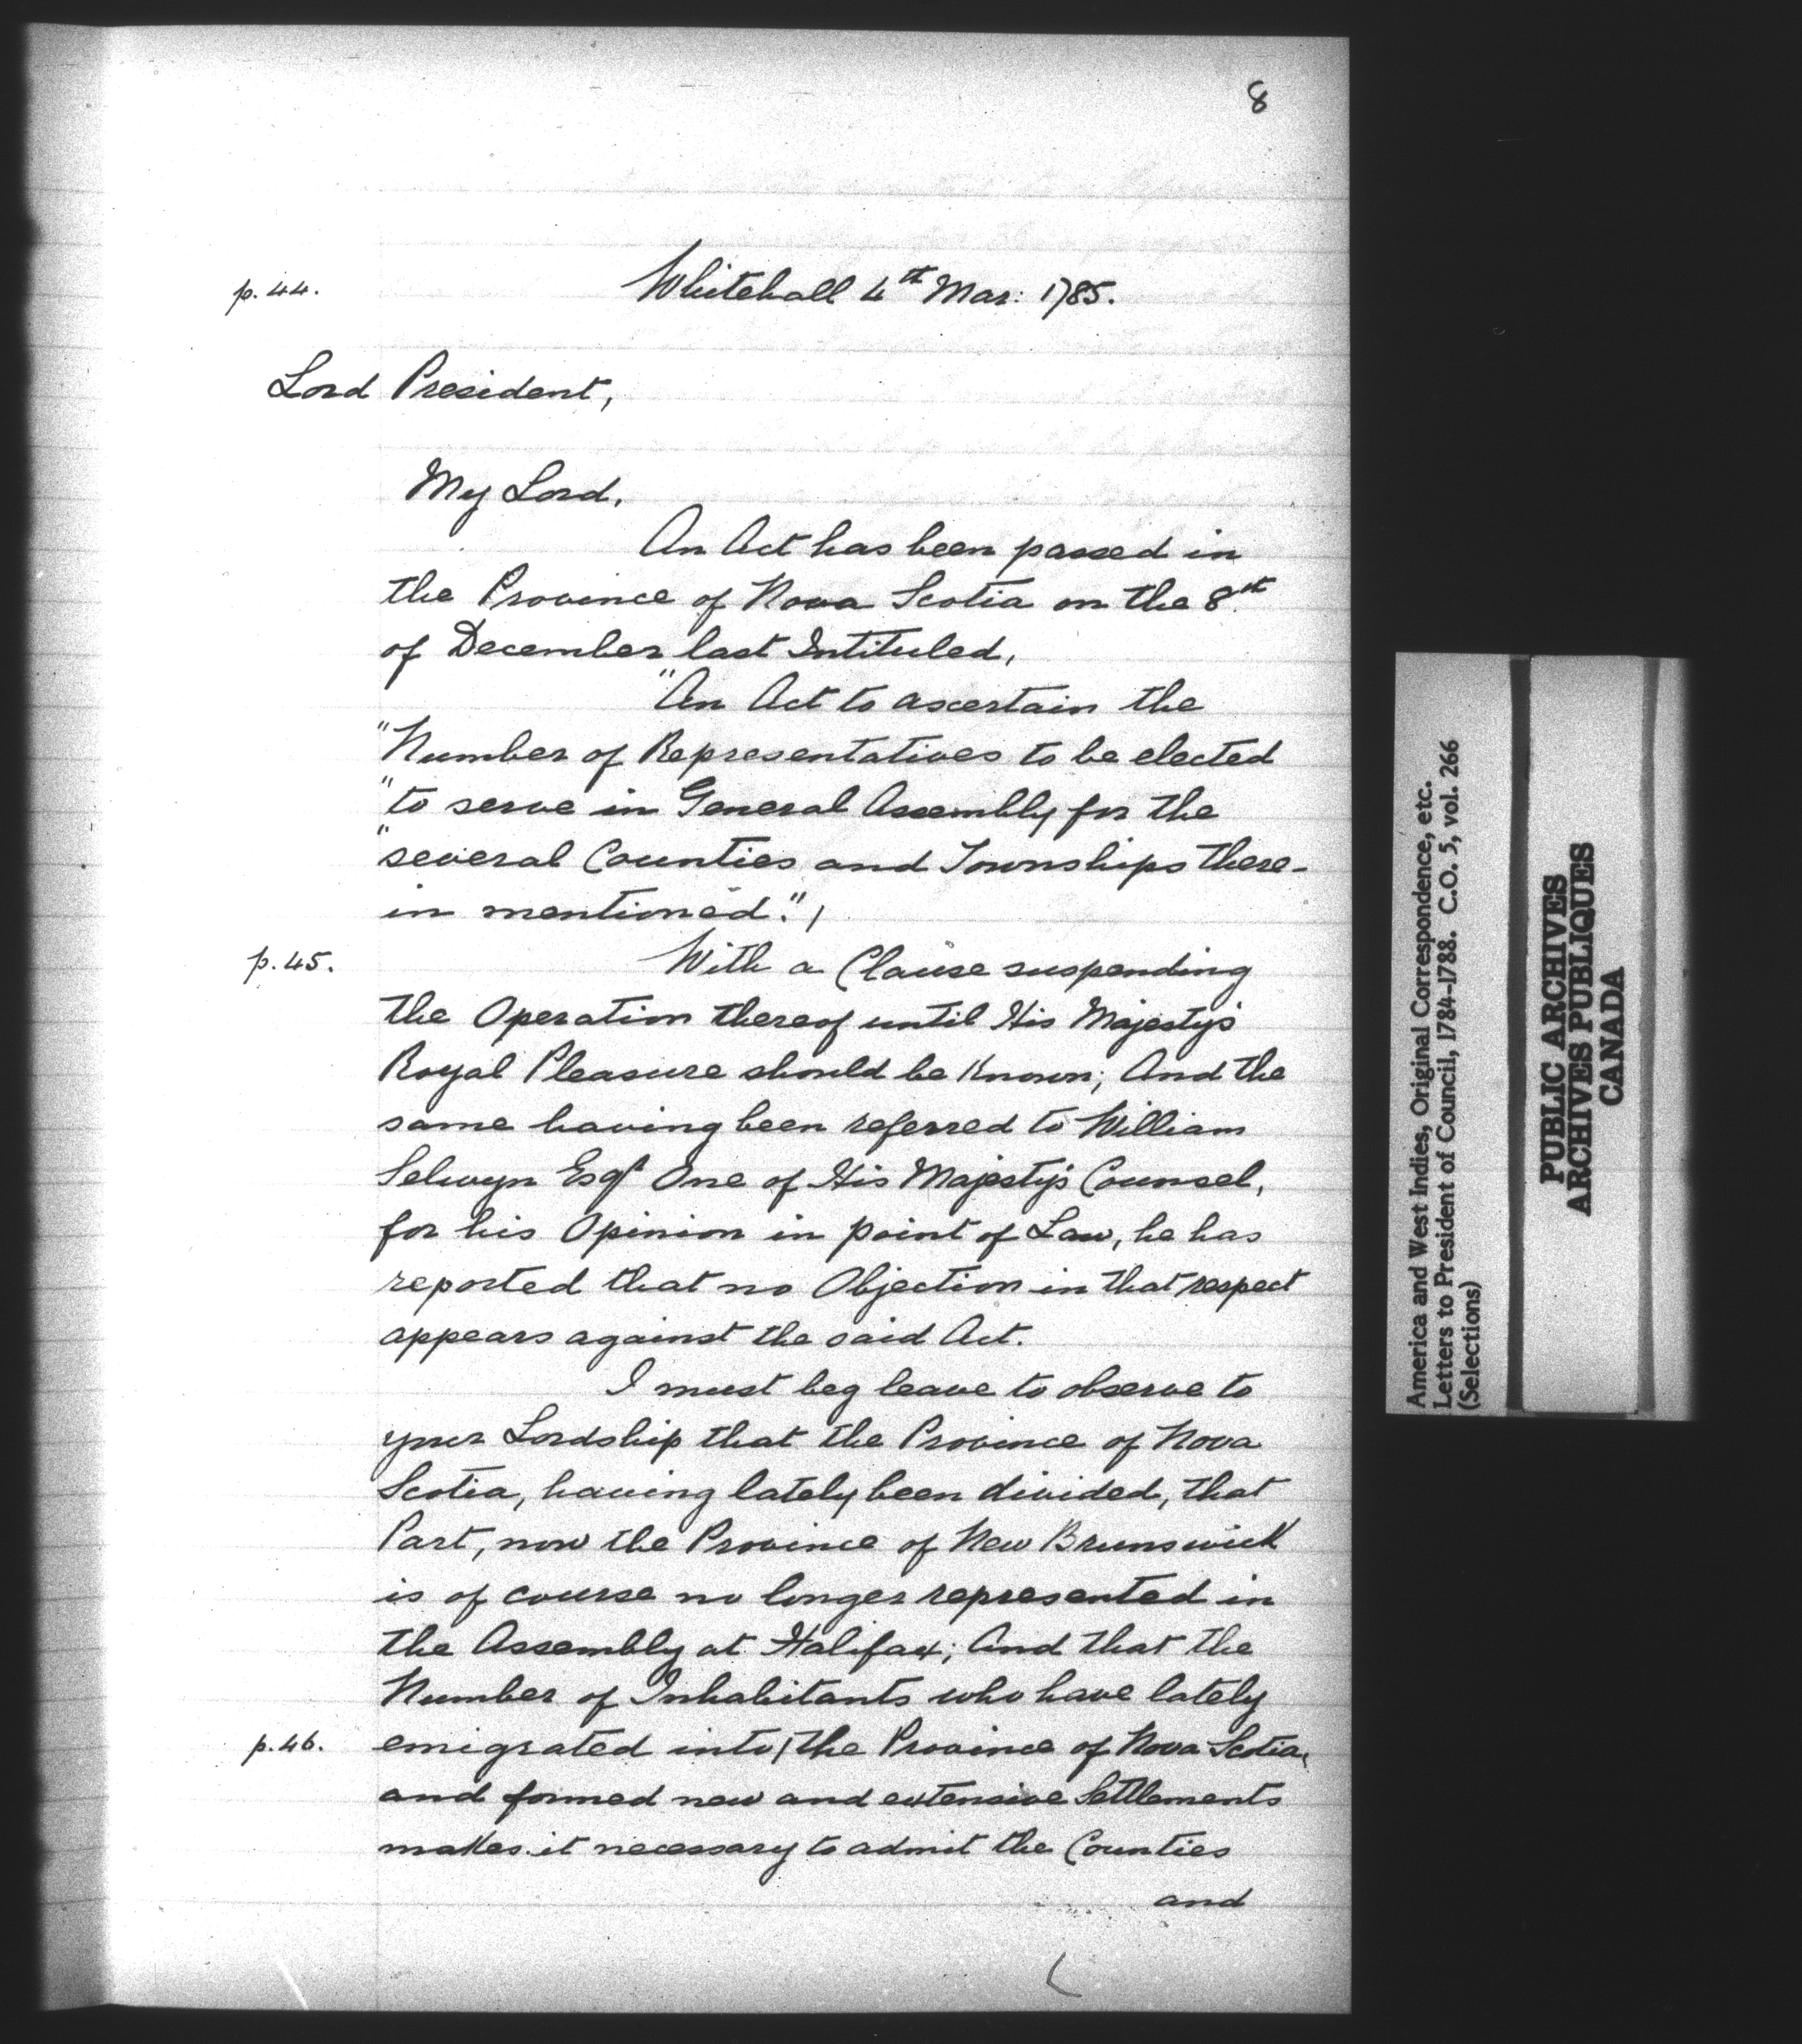 8
p. 44.
Whitehall 4th Mar: 1785.
Lord President,
My Lord,
An Act has been passed in
the Province of Nova Scotia on the 8th
of December last Intituled,
"An Act to ascertain the
"Number of Representatives to be elected
"to serve in General Assembly for the
"several Counties and Townships there-
in mentioned.",
p. 45.
With a Clause suspending
the Operation thereof until His Majesty's
Royal Pleasure should be Known; And the
same having been referred to William
Selwyn Esqr One of His Majesty's Counsel,
for his Opinion in point of Law, he has
reported that no Objection in that respect
appears against the said Act.
I must beg leave to observe to
your Lordship that the Province of Nova
Scotia, having lately been divided, that
Part, now the Province of New Brunswick
is of course no longer represented in
the Assembly at Halifax; And that the
Number of Inhabitants who have lately
p. 46.
emigrated into / the Province of Nova Scotia,
and formed new and extensive Settlements
makes it necessary to admit the Counties
and
America and West Indies, Original Correspondence, etc.
Letters to President of Council, 1784-1788. C.O. 5, vol. 266
(Selections)
PUBLIC ARCHIVES
ARCHIVES PUBLIQUES
CANADA